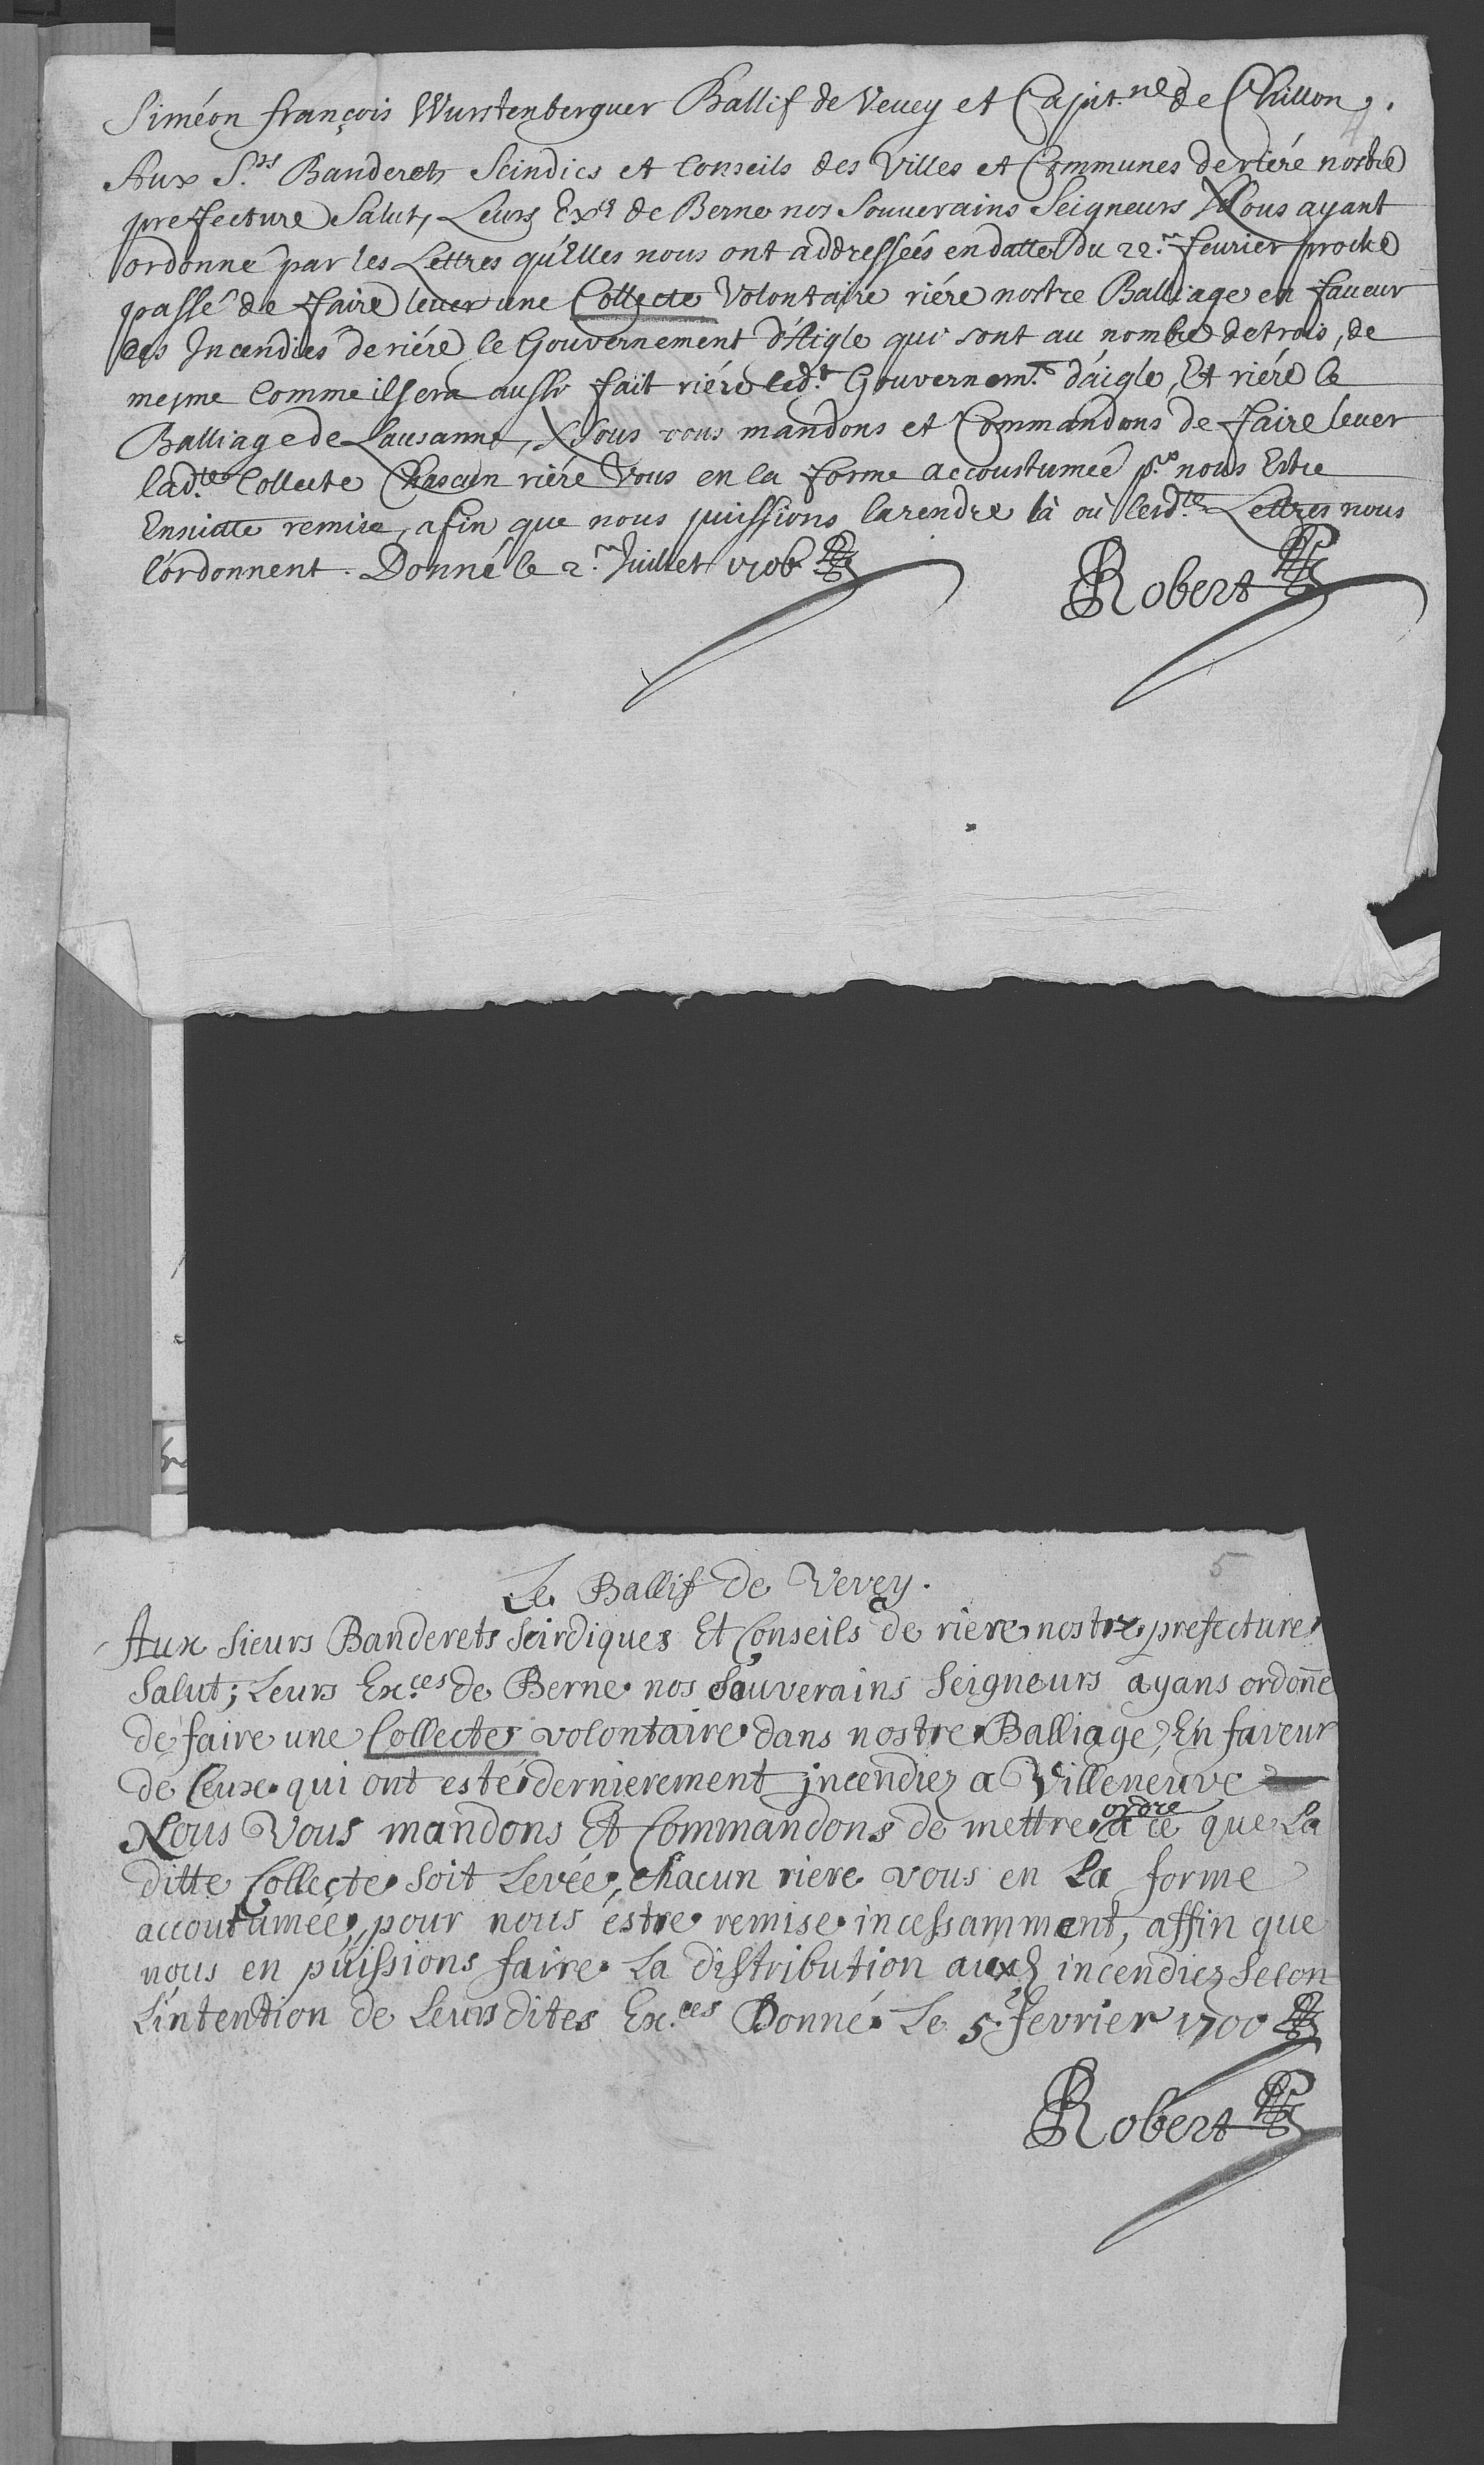 Siméon françois Wurstenberguer Ballif de Vevey et Capit.ne de Chillon,.
4
Aux S.rs Banderets Scindics et Conseils des Villes et Communes de riére nostre
prefecture Salut, Leurs Ex.ces de Berne nos Souuerains Seigneurs Nous ayant
ordonné par les Lettres qu'Elles nous ont addressées en datte du 22.e feurier proche
passé de faire leuer une Collecte Volontaire riére nostre Balliage en faueur
des Incendiés de riére le Gouvernement d'Aigle qui sont au nombre de trois, de
mesme Comme il sera aussi fait riére led.t Gouvernem.t d'aigle, Et riére le
Balliage de Lausanne, Nous vous mandons et Commandons de faire leuer
lad.te Collecte Chascun riére Vous en la forme accoustumée p.r nous Estre
Ensuitte remise, afin que nous puissions la rendre là où lesd.tes Lettres nous
l'ordonnent. Donné le 2.e Juillet 1706
Robert
5
Le Ballif de Vevey.
Aux Sieurs Banderets Scindiques Et Conseils de riere nostre prefecture
Salut; Leurs Ex.ces de Berne nos Souverains Seigneurs ayans ordonné
de faire une Collecte volontaire dans nostre Balliage, En faveur
de Ceux qui ont esté dernierement incendiez a Villeneuve
ordre
Nous Vous mandons Et Commandons de mettre a ce que La
ditte Collecte soit Levée, chacun riere vous en La forme
accoutumée, pour nous estre remise incessamment, affin que
nous en puissions faire La distribution auxd incendiez Selon
L'intention de Leurs dites Ex.ces Donné Le 5.e fevrier 1700
Robert